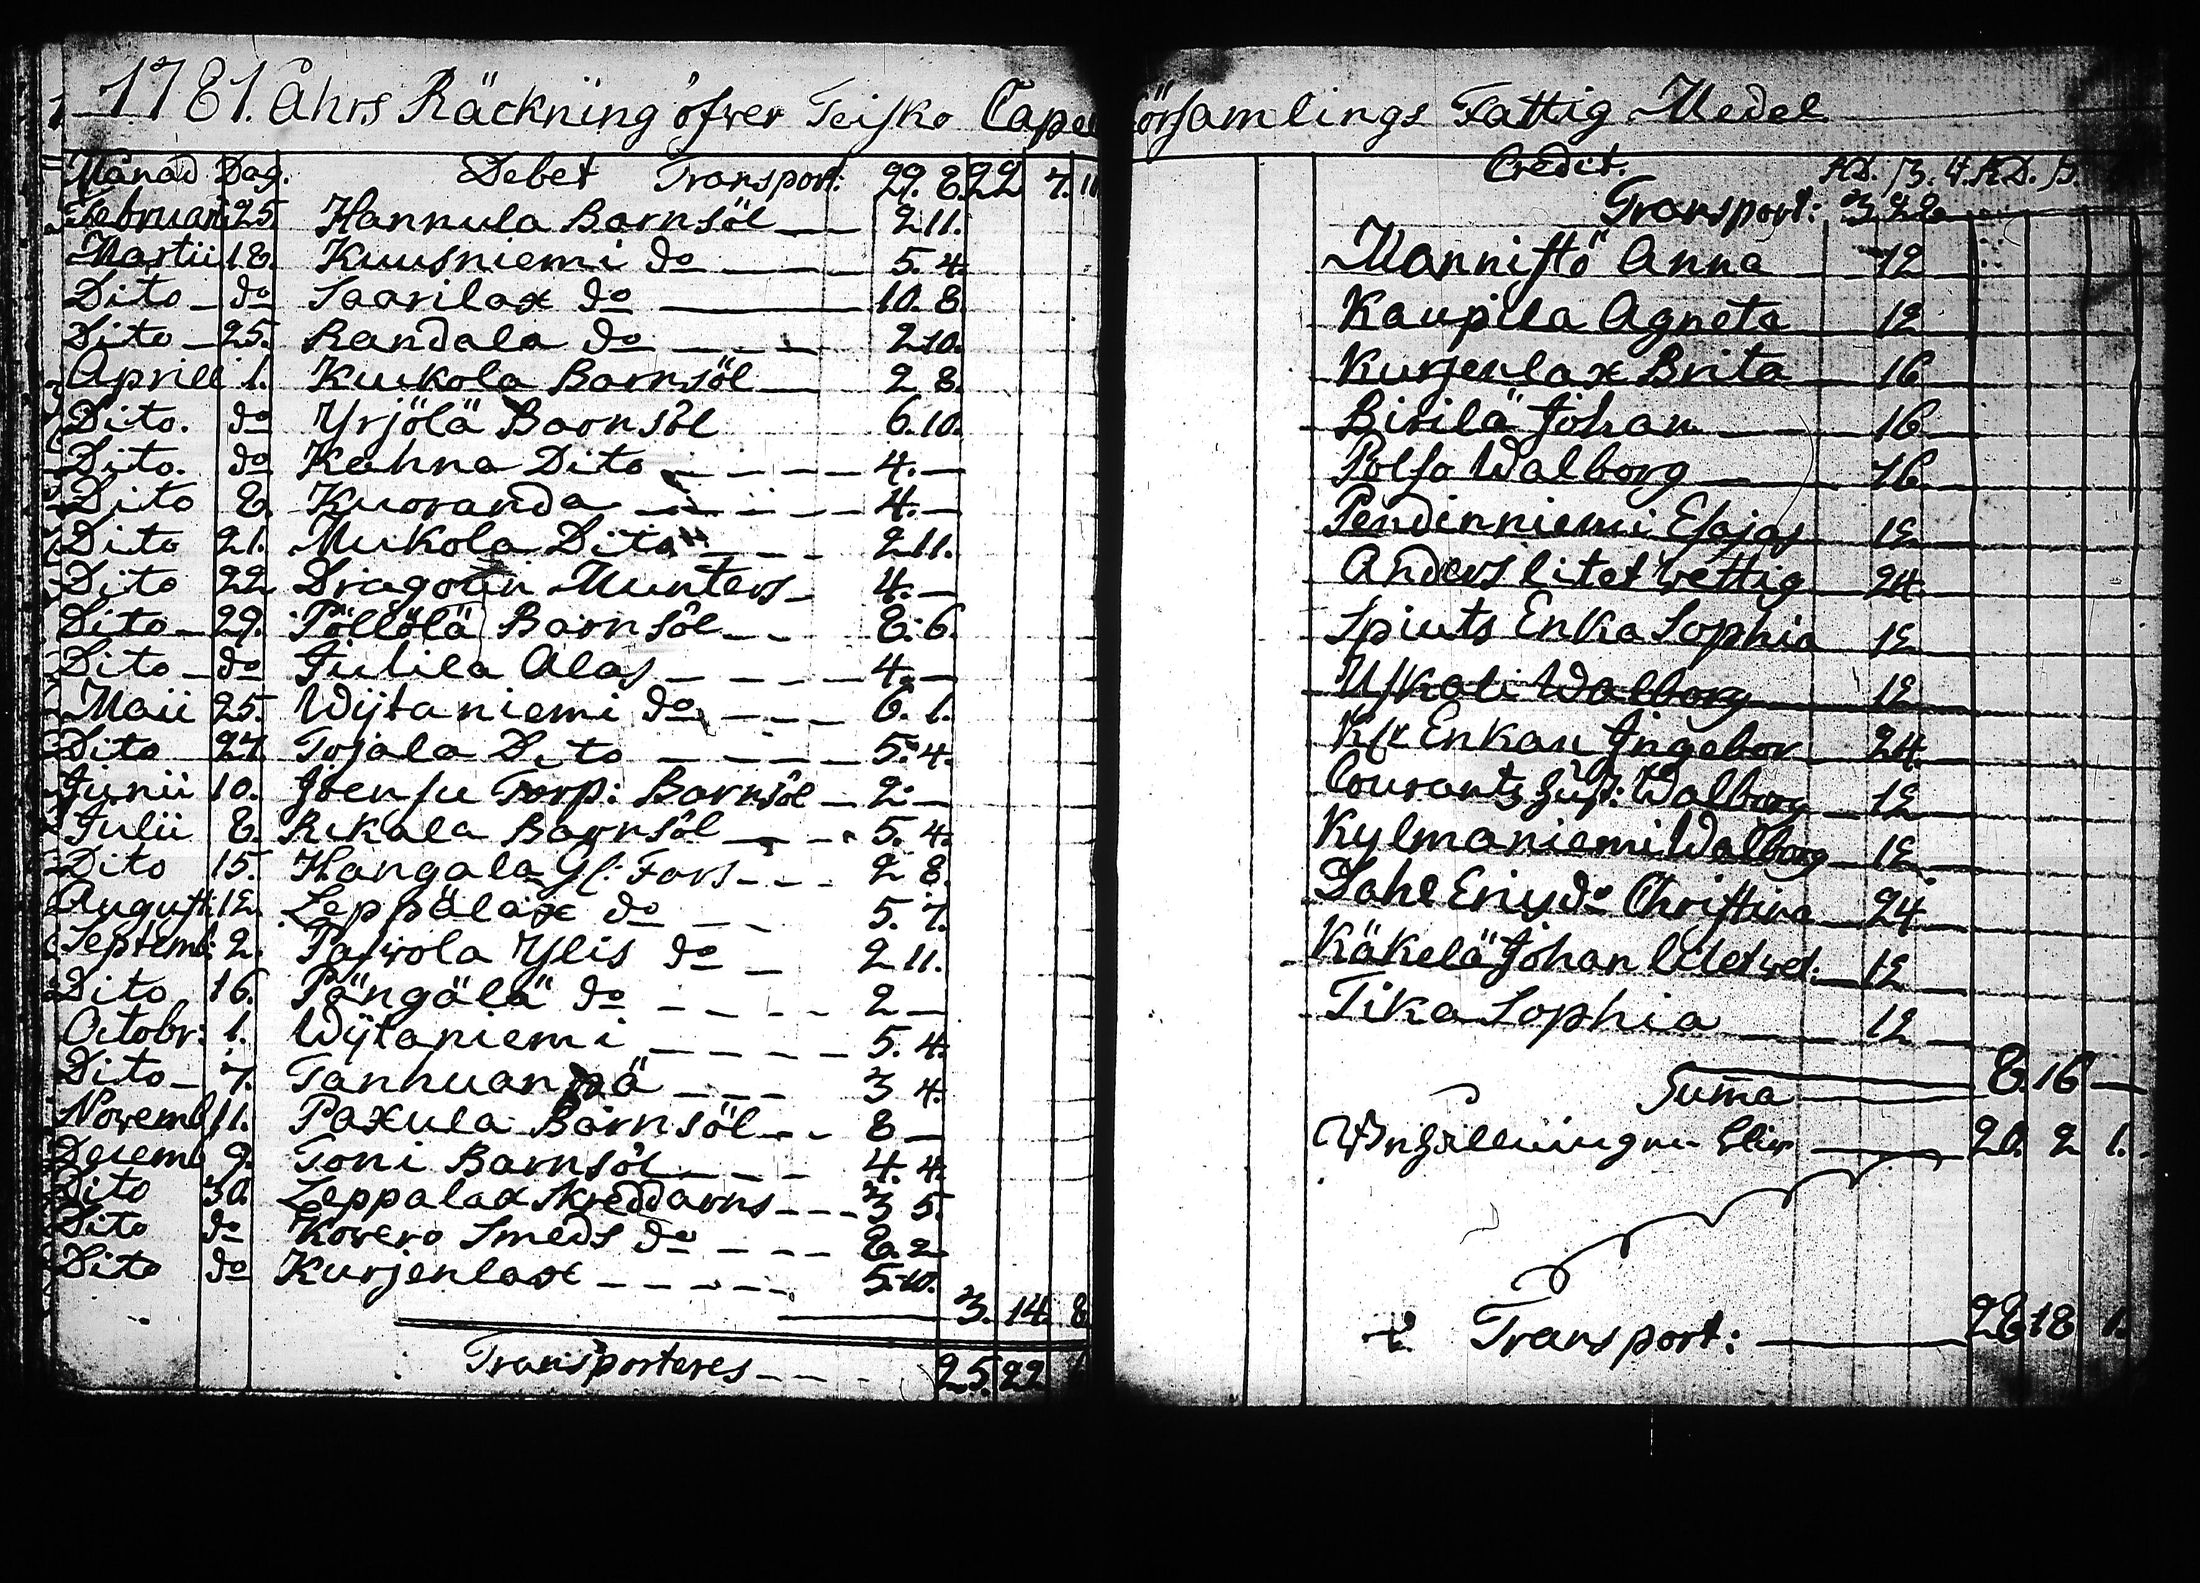 1781. Åhrs Räckning öfver Teisko Capel
Månad Dag. Debet Transport: 29. 8. 22 7. 11
Februari 25. Hannula Barnsöl 2 11.
Martii 18. Kuusniemi do 5. 4.
Dito do Saarilax do 10. 8.
Dito 25. Randala do 2 10.
Aprill 1. Kuukola Barnsöl 2 8.
Dito. do Yrjölä Barnsöl 6. 10.
Dito. do Kahna Dito 4. —
Dito 8. Kuoranda 4. —
Dito 21. Mukola Dito 2 11.
Dito 22 Dragoun Munters 4. —
Dito 29. Pöllölä Barnsöl 8. 6.
Dito do Julila Alas 4. —
Maii 25. Wijtaniemi do 6. 1.
Dito 27. Tojala Dito 5. 4.
Junii 10. Joensu Torp: Barnsöl 2. —
Julii 8. Rikala Barnsöl 5. 4.
Dito 15. Hangala Gl: Fars 2 8.
Augusti 12. Leppälax do 5. 7.
Septemb: 2. Pafvola Ylis do 2 11.
Dito 16. Pängälä do 2 —
Octobr: 1. Wijtaniemi 5. 4.
Dito 7. Tanhuanpä 3 4.
Novemb 11. Paxula Barnsöl 8 —
Decemb 9. Toni Barnsöl 4. 4.
Dito 30. Leppalax Skreddarns 3 5.
Dito do Kovero Smeds do 8. 2
Dito do Kurjenlax 5. 10.
3. 14. 8
Transporteres 25. 22
församlings Fattig Medel
Credit. RD. ß. RD. ß.
Transport: 3 22
Mannistö Anna 12
Kaupila Agneta 12
Kurjenlax Brita 16
Birilä Johan 16
Polso Walborg 16
Pendinniemi Esajas 12
Anders litet wettig 24
Spiuts Enka Sophia 12
Uskali Walborg 12
Enkan Ingebor 24
Courants Walborg 12
Kylmaniemi Walborg 12
Dahl Christina 24
Käkelä Johan litet wet: 12
Tika Sophia 12
Suma 8. 16 —
20. 2 1.
Transport: 28 18 1.